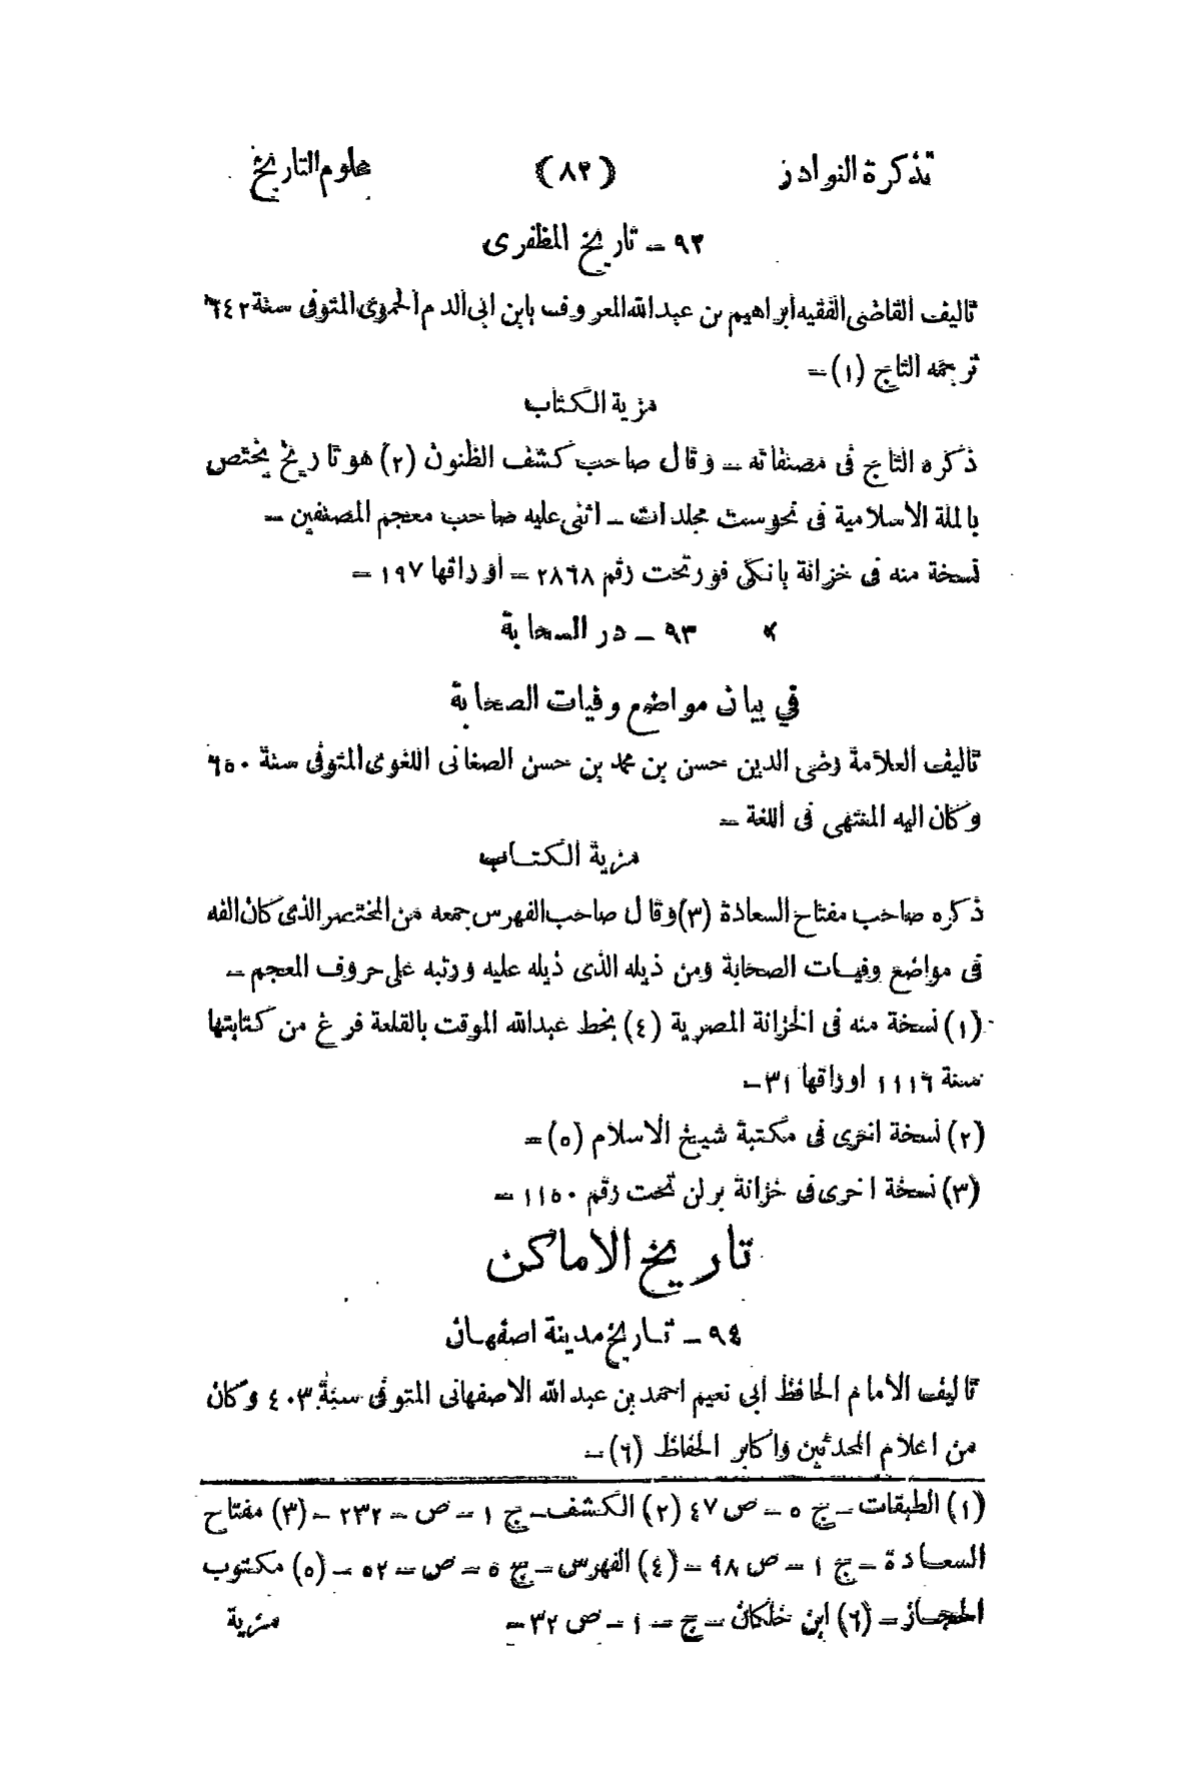 تذكرة النوادر (٨٢) علوم التاريخ
٩٢ – تاريخ المظفرى
تاليف القاضى الفقيه ابراهيم بن عبدالله المعروف بابن ابى الدم الحموى المتوفى سنة ٦٤٢
ترجمه التاج (١) –
مزية الكتاب
ذكره التاج فى مصنفاته – وقال صاحب كشف الظنون (٢) هو تاريخ يختص
بالملة الاسلامية فى نحو ست مجلدات – اثنى عليه صاحب معجم المصنفين –
نسخة منه فى خزانة بانكى فور تحت رقم ٢٨٦٨ – اوراقها ١٩٧ –
٩٣ – در السحابة
في بيان مواضع وفيات الصحابة
تاليف العلامة رضى الدين حسن بن محمد بن حسن الصغانى اللغوى المتوفى سنة ٦٥٠
وكان اليه المنتهى فى اللغة –
مزية الكتاب
ذكره صاحب مفتاح السعادة (٣) وقال صاحب الفهرس جمعه من المختصر الذى كان الفه
فى مواضع وفيات الصحابة ومن ذيله الذى ذيله عليه ورتبه على حروف المعجم –
(١) نسخة منه فى الخزانة المصرية (٤) بخط عبدالله الموقت بالقلعة فرغ من كتابتها
سنة ١١١٦ اوراقها ٣١ –
(٢) نسخة اخرى فى مكتبة شيخ الاسلام (٥) –
(٣) نسخة اخرى فى خزانة برلن تحت رقم ١١٥٠ –
تاريخ الاماكن
٩٤ – تاريخ مدينة اصفهان
تاليف الامام الحافظ ابى نعيم احمد بن عبد الله الاصفهانى المتوفى سنة ٤٠٣ وكان
من اعلام المحدثين واكابر الحفاظ (٦) –
(١) الطبقات – ج ٥ – ص ٤٧ (٢) الكشف – ج ١ – ص – ٢٣٢ – (٣) مفتاح
السعادة – ج ١ – ص ٩٨ – (٤) الفهرس – ج ٥ – ص – ٥٢ – (٥) مكتوب
الحجاز – (٦) ابن خلكان – ج – ١ – ص ٣٢ –
مزية